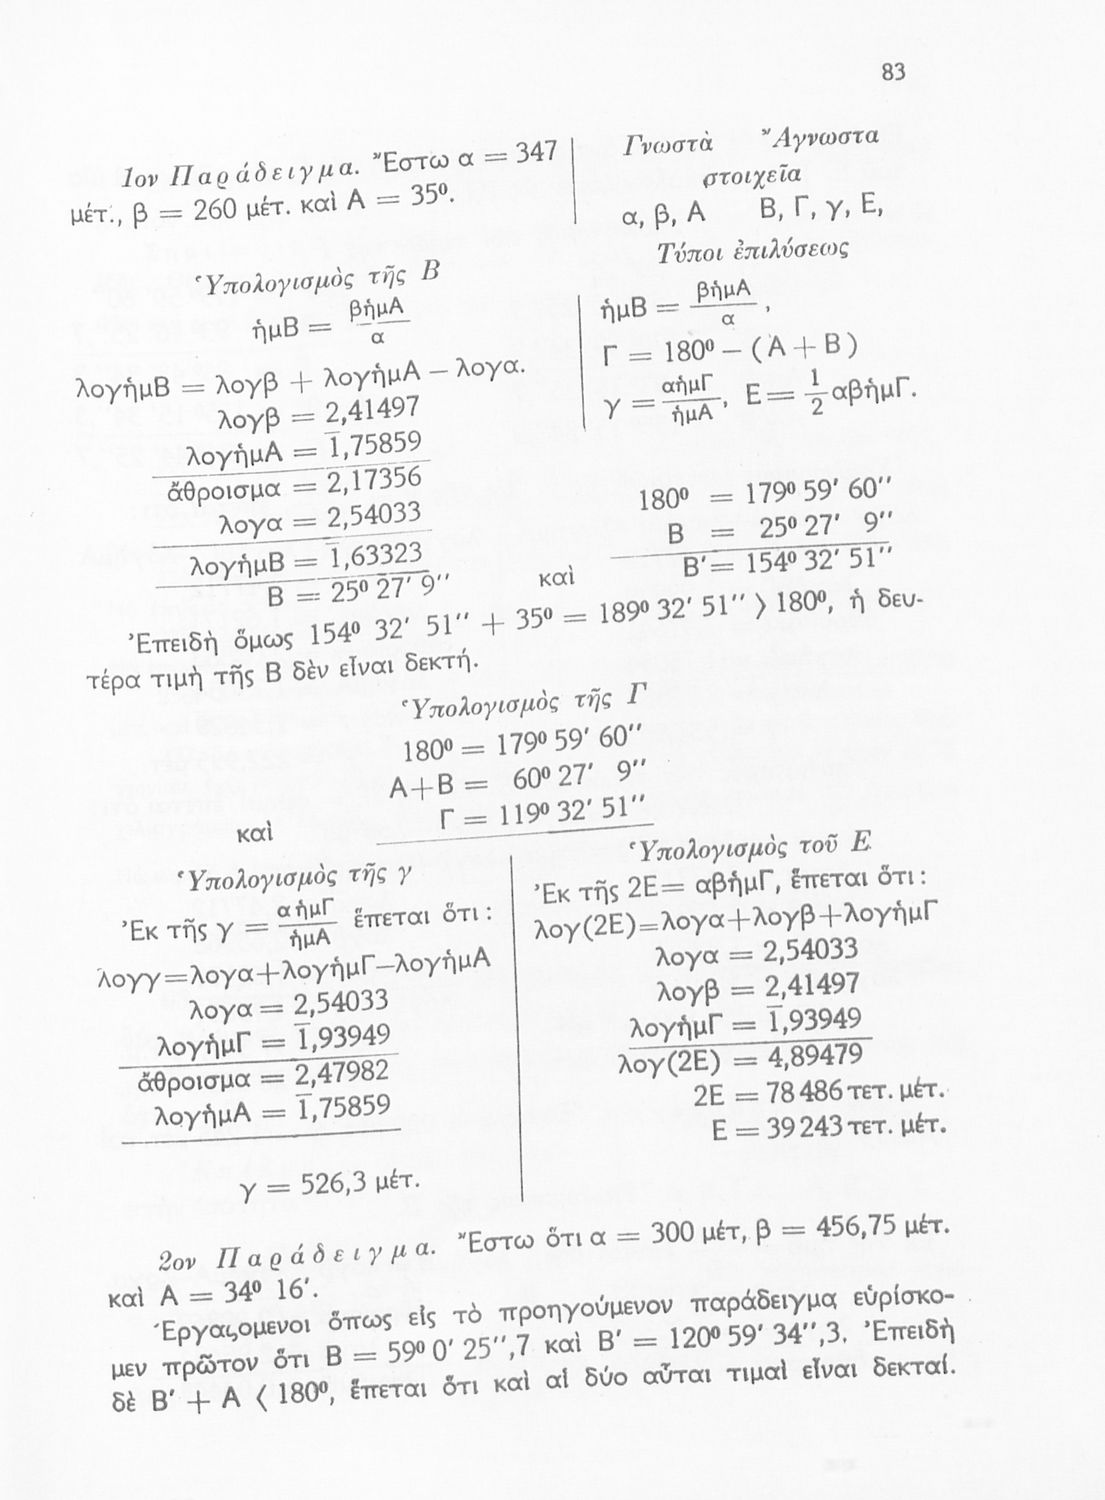 83
1ον Παράδειγμα. Ἔστω α = 347
μέτ., β = 260 μέτ. καὶ Α = 35⁰.
Γνωστὰ Ἄγνωστα
στοιχεῖα
α, β, Α Β, Γ, γ, Ε,
Τύποι ἐπιλύσεως
ἡμΒ = βἡμΑ / α ,
Γ = 180⁰ – (Α + Β)
γ = αἡμΓ / ἡμΑ , Ε = 1/2 αβἡμΓ.
Ὑπολογισμὸς τῆς Β
ἡμΒ = βἡμΑ / α
λογἡμΒ = λογβ + λογἡμΑ – λογα.
λογβ = 2,41497
λογἡμΑ = 1̅,75859
ἄθροισμα = 2,17356
λογα = 2,54033
λογἡμΒ = 1̅,63323
Β = 25⁰ 27′ 9′′
καὶ
180⁰ = 179⁰ 59′ 60′′
Β = 25⁰ 27′ 9′′
Β′ = 154⁰ 32′ 51′′
Ἐπειδὴ ὅμως 154⁰ 32′ 51′′ + 35⁰ = 189⁰ 32′ 51′′ ⟩ 180⁰, ἡ δευ-
τέρα τιμὴ τῆς Β δὲν εἶναι δεκτή.
Ὑπολογισμὸς τῆς Γ
180⁰ = 179⁰ 59′ 60′′
Α+Β = 60⁰ 27′ 9′′
Γ = 119⁰ 32′ 51′′
καὶ
Ὑπολογισμὸς τῆς γ
Ἐκ τῆς γ = αἡμΓ / ἡμΑ ἕπεται ὅτι :
λογγ=λογα+λογἡμΓ–λογἡμΑ
λογα = 2,54033
λογἡμΓ = 1̅,93949
ἄθροισμα = 2,47982
λογἡμΑ = 1̅,75859
γ = 526,3 μέτ.
Ὑπολογισμὸς τοῦ Ε
Ἐκ τῆς 2Ε= αβἡμΓ, ἕπεται ὅτι :
λογ(2Ε)=λογα+λογβ+λογἡμΓ
λογα = 2,54033
λογβ = 2,41497
λογἡμΓ = 1̅,93949
λογ(2Ε) = 4,89479
2Ε = 78 486 τετ. μέτ.
Ε = 39 243 τετ. μέτ.
2ον Παράδειγμα. Ἔστω ὅτι α = 300 μέτ, β = 456,75 μέτ.
καὶ Α = 34⁰ 16′.
Ἐργαζομενοι ὅπως εἰς τὸ προηγούμενον παράδειγμα εὑρίσκο-
μεν πρῶτον ὅτι Β = 59⁰ 0′ 25′′,7 καὶ Β′ = 120⁰ 59′ 34′′,3. Ἐπειδὴ
δὲ Β′ + Α ⟨ 180⁰, ἕπεται ὅτι καὶ αἱ δύο αὗται τιμαὶ εἶναι δεκταί.